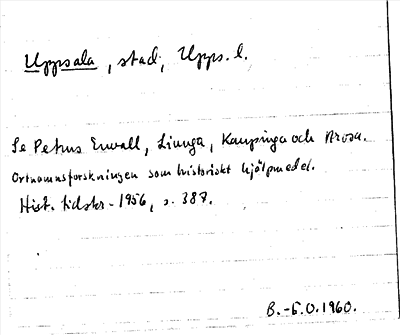 Uppsala, stad, Upps. l.
Se Petrus Envall, Liunga, Kaupinga och Arosa.
Ortnamnsforskningen som historiskt hjälpmedel.
Hist. tidskr. 1956, s. 387.
B.-G.O. 1960.